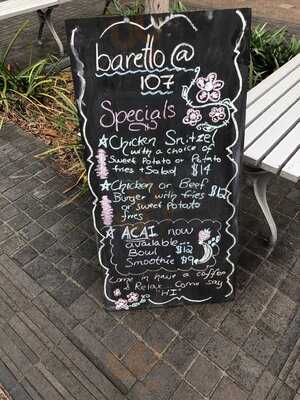 baretto @
107
Specials
Chicken Snitzel
with a choice of
Sweet Potato or Potato
fries + Salad $14
Chicken or Beef
Burger with fries $12
or sweet Potato
fries
ACAI now
available...
Bowl $12
Smoothie $9
Come in have a coffee
& Relax. Come say
"HI"